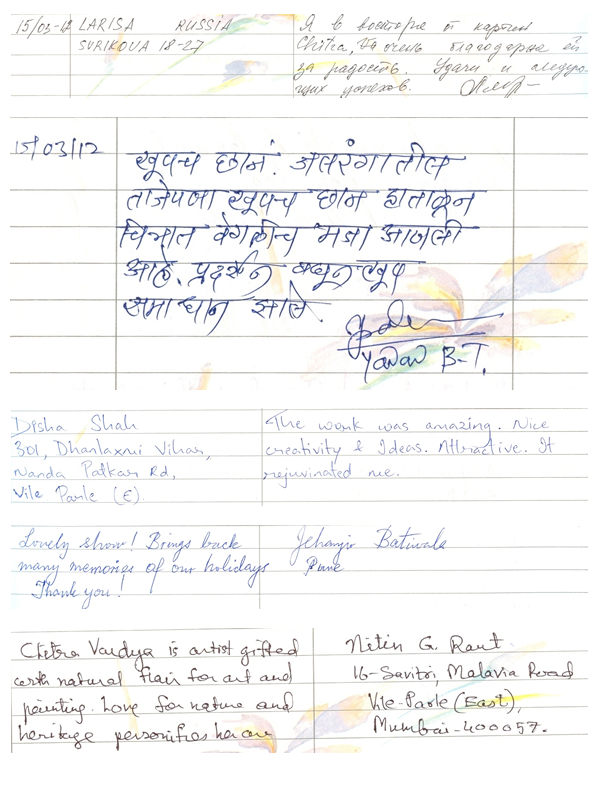 15/03-12 LARISA RUSSIA
SURIKOVA 18-27
Я в восторге от картин
Chitra, очень благодарна ей
за радость. Удачи и следую-
щих успехов.
15/03/12
खूपच छान. जलरंगातील
ताजेपणा खूपच छान हाताळून
चित्रात वेगळीच मजा आणली
आहे. प्रदर्शन बघून खूप
समाधान झाले.
Yadav B-T.
Disha Shah
301, Dhanlaxmi Vihar,
Nanda Patkar Rd,
Vile Parle (E).
The work was amazing. Nice
creativity & Ideas. Attractive. It
rejuvinated me.
Lovely show! Brings back
many memories of our holidays
Thank you!
Jehangir Batiwala
Pune
Chitra Vaidya is artist gifted
with natural flair for art and
painting. Love for nature and
heritage personifies her
Nitin G. Raut.
16-Savitri, Malavia Road
Vile-Parle (East),
Mumbai-400057.